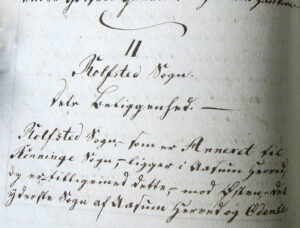 II
Rolfsted Sogn.
Dets Beliggenhed. —
Rolfsted Sogn, som er Annexet til
Rønninge Sogn, ligger i Aasum Herred,
og er, tilligemed dette, mod Østen det
yderste Sogn af Aasum Herred og Odense